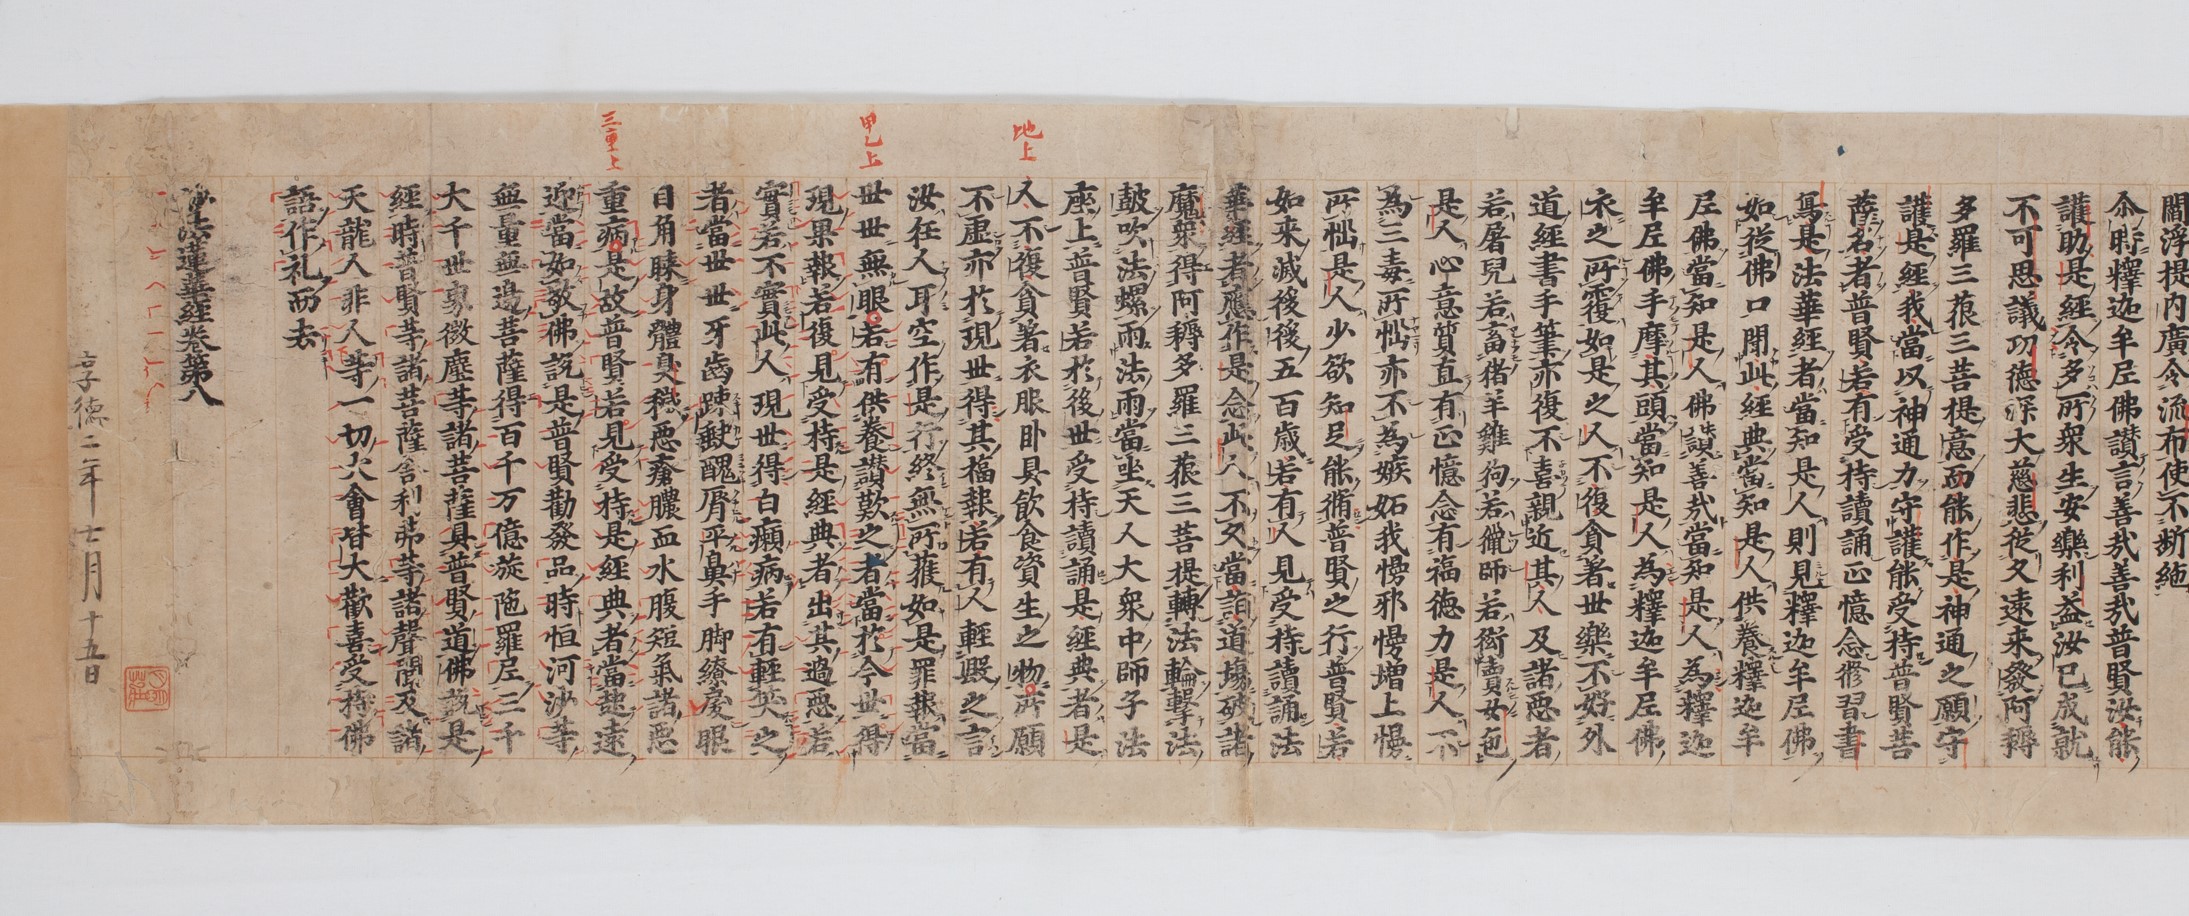 閻浮提内廣令流布使不断絶
尒時釋迦牟尼佛讃言善㢤善㢤普賢汝能
護助是經令多所衆生安樂利益汝已成就
不可思議功徳深大慈悲従久遠来發阿耨
多羅三藐三菩提意而能作是神通之願守
護是經我當以神通力守護能受持普賢菩
薩名者普賢若有受持讀誦正憶念修習書
寫是法華經者當知是人則見釋迦牟尼佛
如従佛口聞此經典當知是人供養釋迦牟
尼佛當知是人佛讃善㢤當知是人為釋迦
牟尼佛手摩其頭當知是人為釋迦牟尼佛
衣之所覆如是之人不復貪著世樂不好外
道經書手筆亦復不喜親近其人及諸悪者
若屠兒若畜猪羊雞狗若獵師若衒賣女色
是人心意質直有正憶念有福徳力是人不
為三毒所惱亦不為嫉妬我慢邪慢増上慢
所惱是人少欲知足能脩普賢之行普賢若
如来滅後後五百歳若有人見受持讀誦法
華經者應作是念此人不久當詣道場破諸
魔衆得阿耨多羅三藐三菩提轉法輪撃法
皷吹法螺雨法雨當坐天人大衆中師子法
座上普賢若於後世受持讀誦是經典者是
人不復貪著衣服卧具飲食資生之物所願
不虚亦於現世得其福報若有人輕毀之言
汝狂人耳空作是行終無所獲如是罪報當
世世無眼若有供養讃歎之者當於今世得
現果報若復見受持是經典者出其過悪若
實若不實此人現世得白癩病若有輕笑之
者當世世牙齒踈缺醜脣平鼻手脚繚戻眼
目角睞身體臭穢悪瘡膿血水腹短氣諸悪
重病是故普賢若見受持是經典者當起遠
迎當如敬佛説是普賢勸發品時恒河沙等
無量無邊菩薩得百千万億旋陁羅尼三千
大千世界微塵等諸菩薩具普賢道佛説是
經時普賢等諸菩薩舎利弗等諸聲聞及諸
天龍人非人等一切大會皆大歡喜受持佛
語作礼而去
妙法蓮華經巻第八
享徳二年七月十五日
地上
甲乙上
三重上